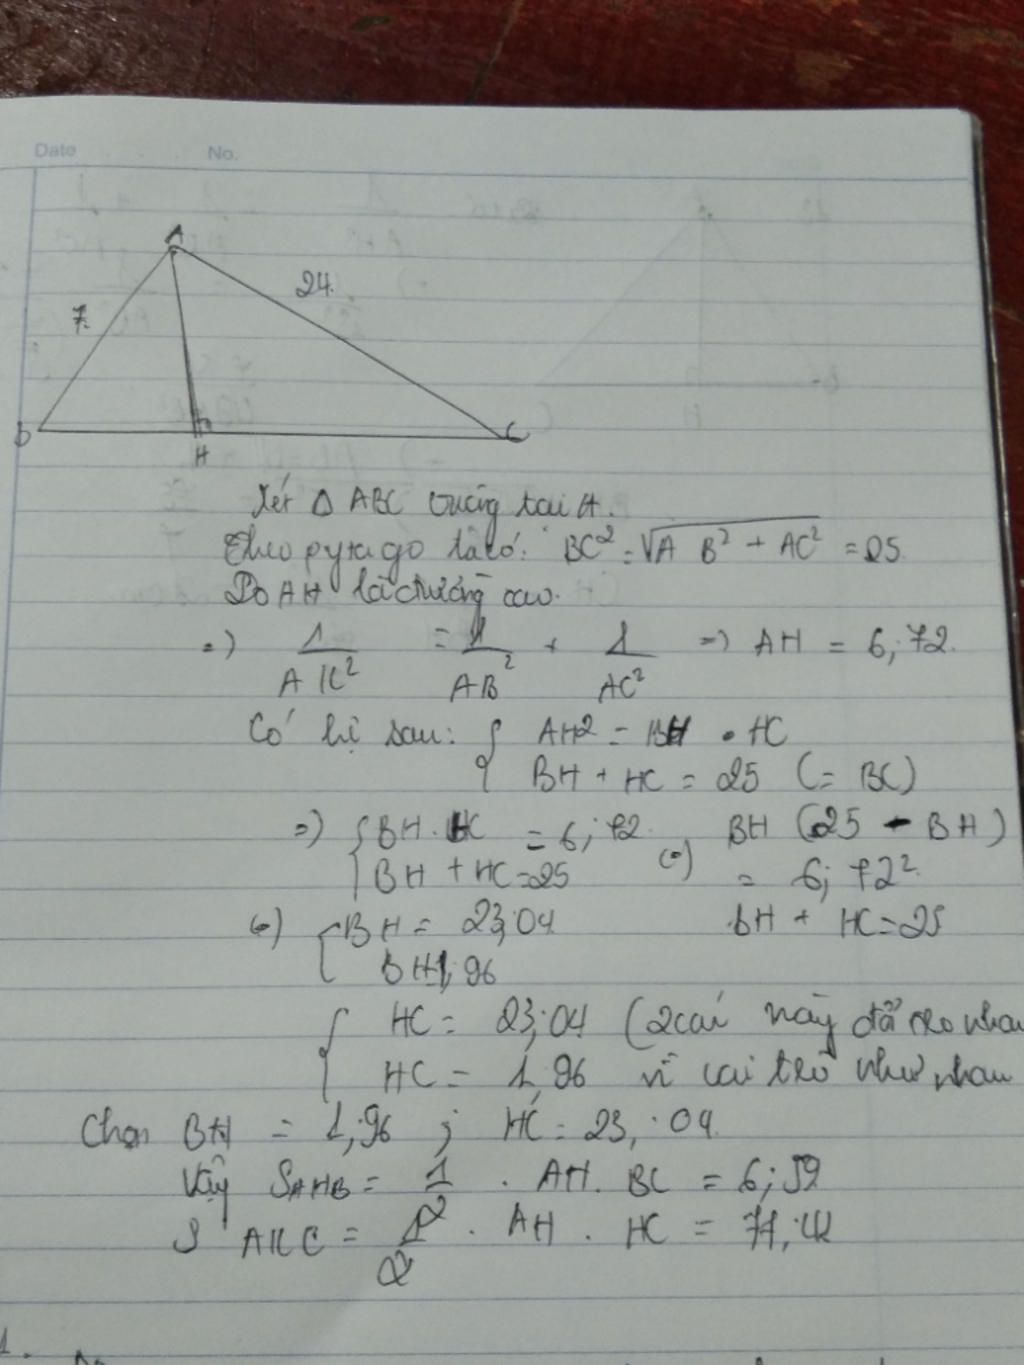 Date No.
A
7.
24.
B
H
C
Xét Δ ABC vuông tại A.
Theo pytago ta có: BC² = √A B² + AC² = 25.
Do AH là đường cao.
=) 1/AH² = 1/AB² + 1/AC² => AH = 6,72.
Có hệ sau: { AH2 = BH . HC
BH + HC = 25 (= BC)
=) { BH. HC = 6,72. (=) BH (25 - BH)
BH + HC = 25 = 6,72²
(=) { BH = 23,04 BH + HC = 25
BH = 1,96
{ HC = 23,04 (2 cái này đổi cho nhau
HC = 1,96 vì vai trò như nhau
Chọn BH = 1,96 ; HC = 23,04.
Vậy SAHB = 1/2 . AH. BC = 6,59
S AHC = 1/2 . AH . HC = 77,42
1.